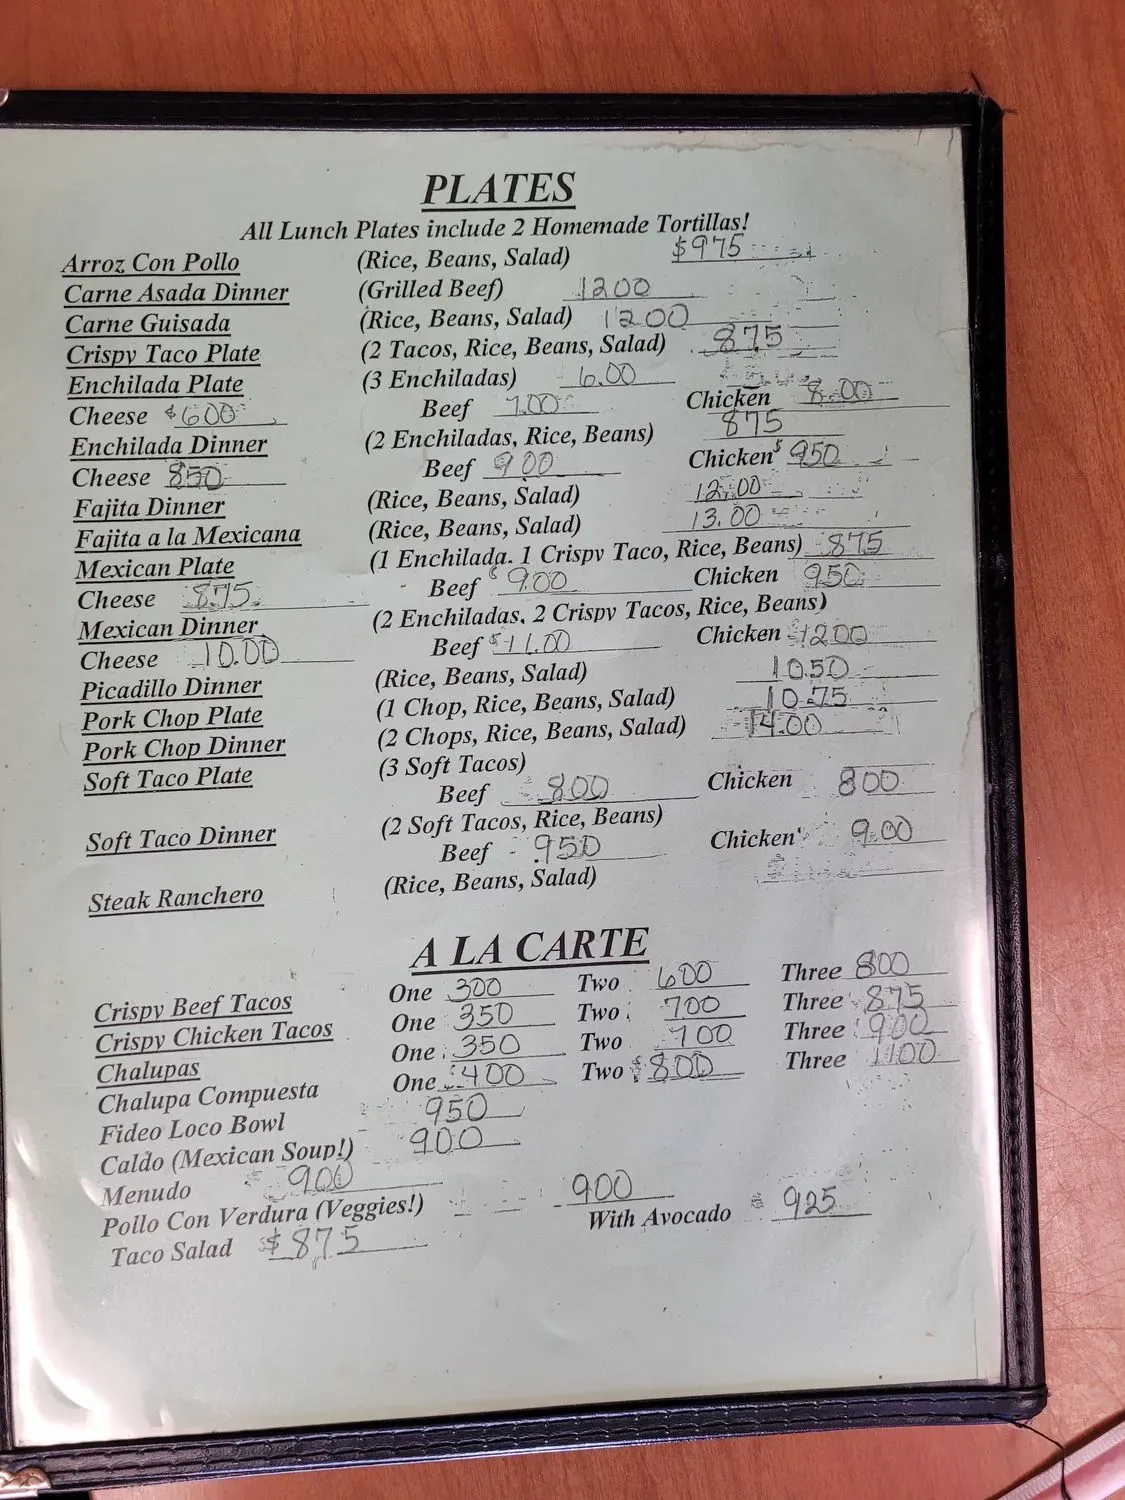 PLATES
All Lunch Plates include 2 Homemade Tortillas!
Arroz Con Pollo (Rice, Beans, Salad) $975
Carne Asada Dinner (Grilled Beef) 1200
Carne Guisada (Rice, Beans, Salad) 1200
Crispy Taco Plate (2 Tacos, Rice, Beans, Salad) 875
Enchilada Plate (3 Enchiladas) 6.00
Cheese $600 Beef 7.00 Chicken 8.00
Enchilada Dinner (2 Enchiladas, Rice, Beans) 875
Cheese 850 Beef 9.00 Chicken $950
Fajita Dinner (Rice, Beans, Salad) 12.00
Fajita a la Mexicana (Rice, Beans, Salad) 13.00
Mexican Plate (1 Enchilada, 1 Crispy Taco, Rice, Beans) 875
Cheese 8.75 Beef $9.00 Chicken 950
Mexican Dinner (2 Enchiladas, 2 Crispy Tacos, Rice, Beans)
Cheese 10.00 Beef $11.00 Chicken 1200
Picadillo Dinner (Rice, Beans, Salad) 1050
Pork Chop Plate (1 Chop, Rice, Beans, Salad) 1075
Pork Chop Dinner (2 Chops, Rice, Beans, Salad) 14.00
Soft Taco Plate (3 Soft Tacos)
Beef 800 Chicken 800
Soft Taco Dinner (2 Soft Tacos, Rice, Beans)
Beef 950 Chicken 9.00
Steak Ranchero (Rice, Beans, Salad)
A LA CARTE
Crispy Beef Tacos One 300 Two 600 Three 800
Crispy Chicken Tacos One 350 Two 700 Three 875
Chalupas One 350 Two 700 Three 900
Chalupa Compuesta One $400 Two $800 Three 1100
Fideo Loco Bowl 950
Caldo (Mexican Soup!) 900
Menudo 900
Pollo Con Verdura (Veggies!) 900
Taco Salad $875 With Avocado $925